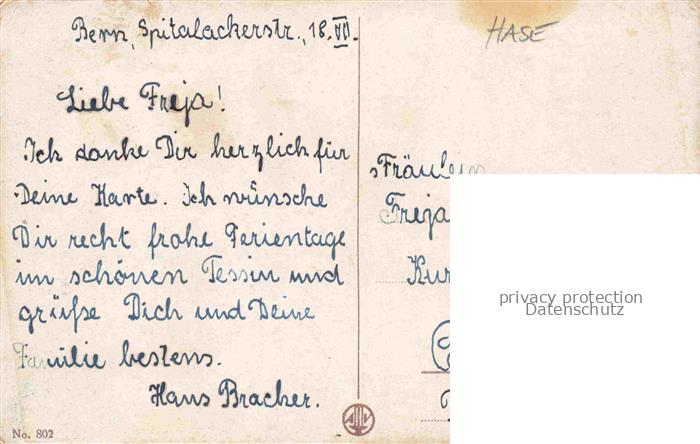 Bern, Spitalackerstr., 18. VII.
HASE
Liebe Freja!
Ich danke Dir herzlich für
Deine Karte. Ich wünsche
Dir recht frohe Ferientage
im schönen Tessin und
grüße Dich und Deine
Familie bestens.
Hans Bracher.
No. 802
Fräulein
Freja
Kur
privacy protection
Datenschutz